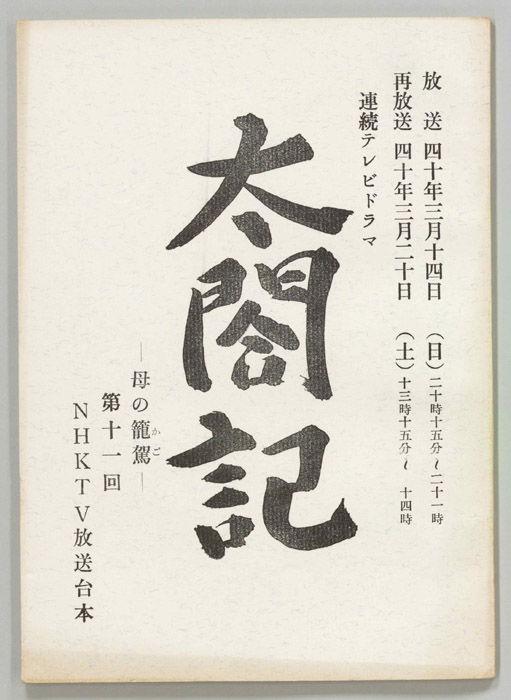 放送 四十年三月十四日 (日) 二十時十五分~二十一時
再放送 四十年三月二十日 (土) 十三時十五分~十四時
連続テレビドラマ
太閤記
―母の籠駕―
かご
第十一回
NHKTV放送台本